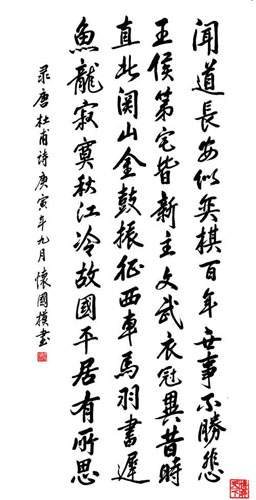 闻道長安似奕棋百年世事不勝悲
王侯第宅皆新主文武衣冠異昔時
直北関山金鼓振征西車馬羽書遲
魚龍寂寞秋江冷故國平居有所思
录唐杜甫詩庚寅年九月懷國樸書